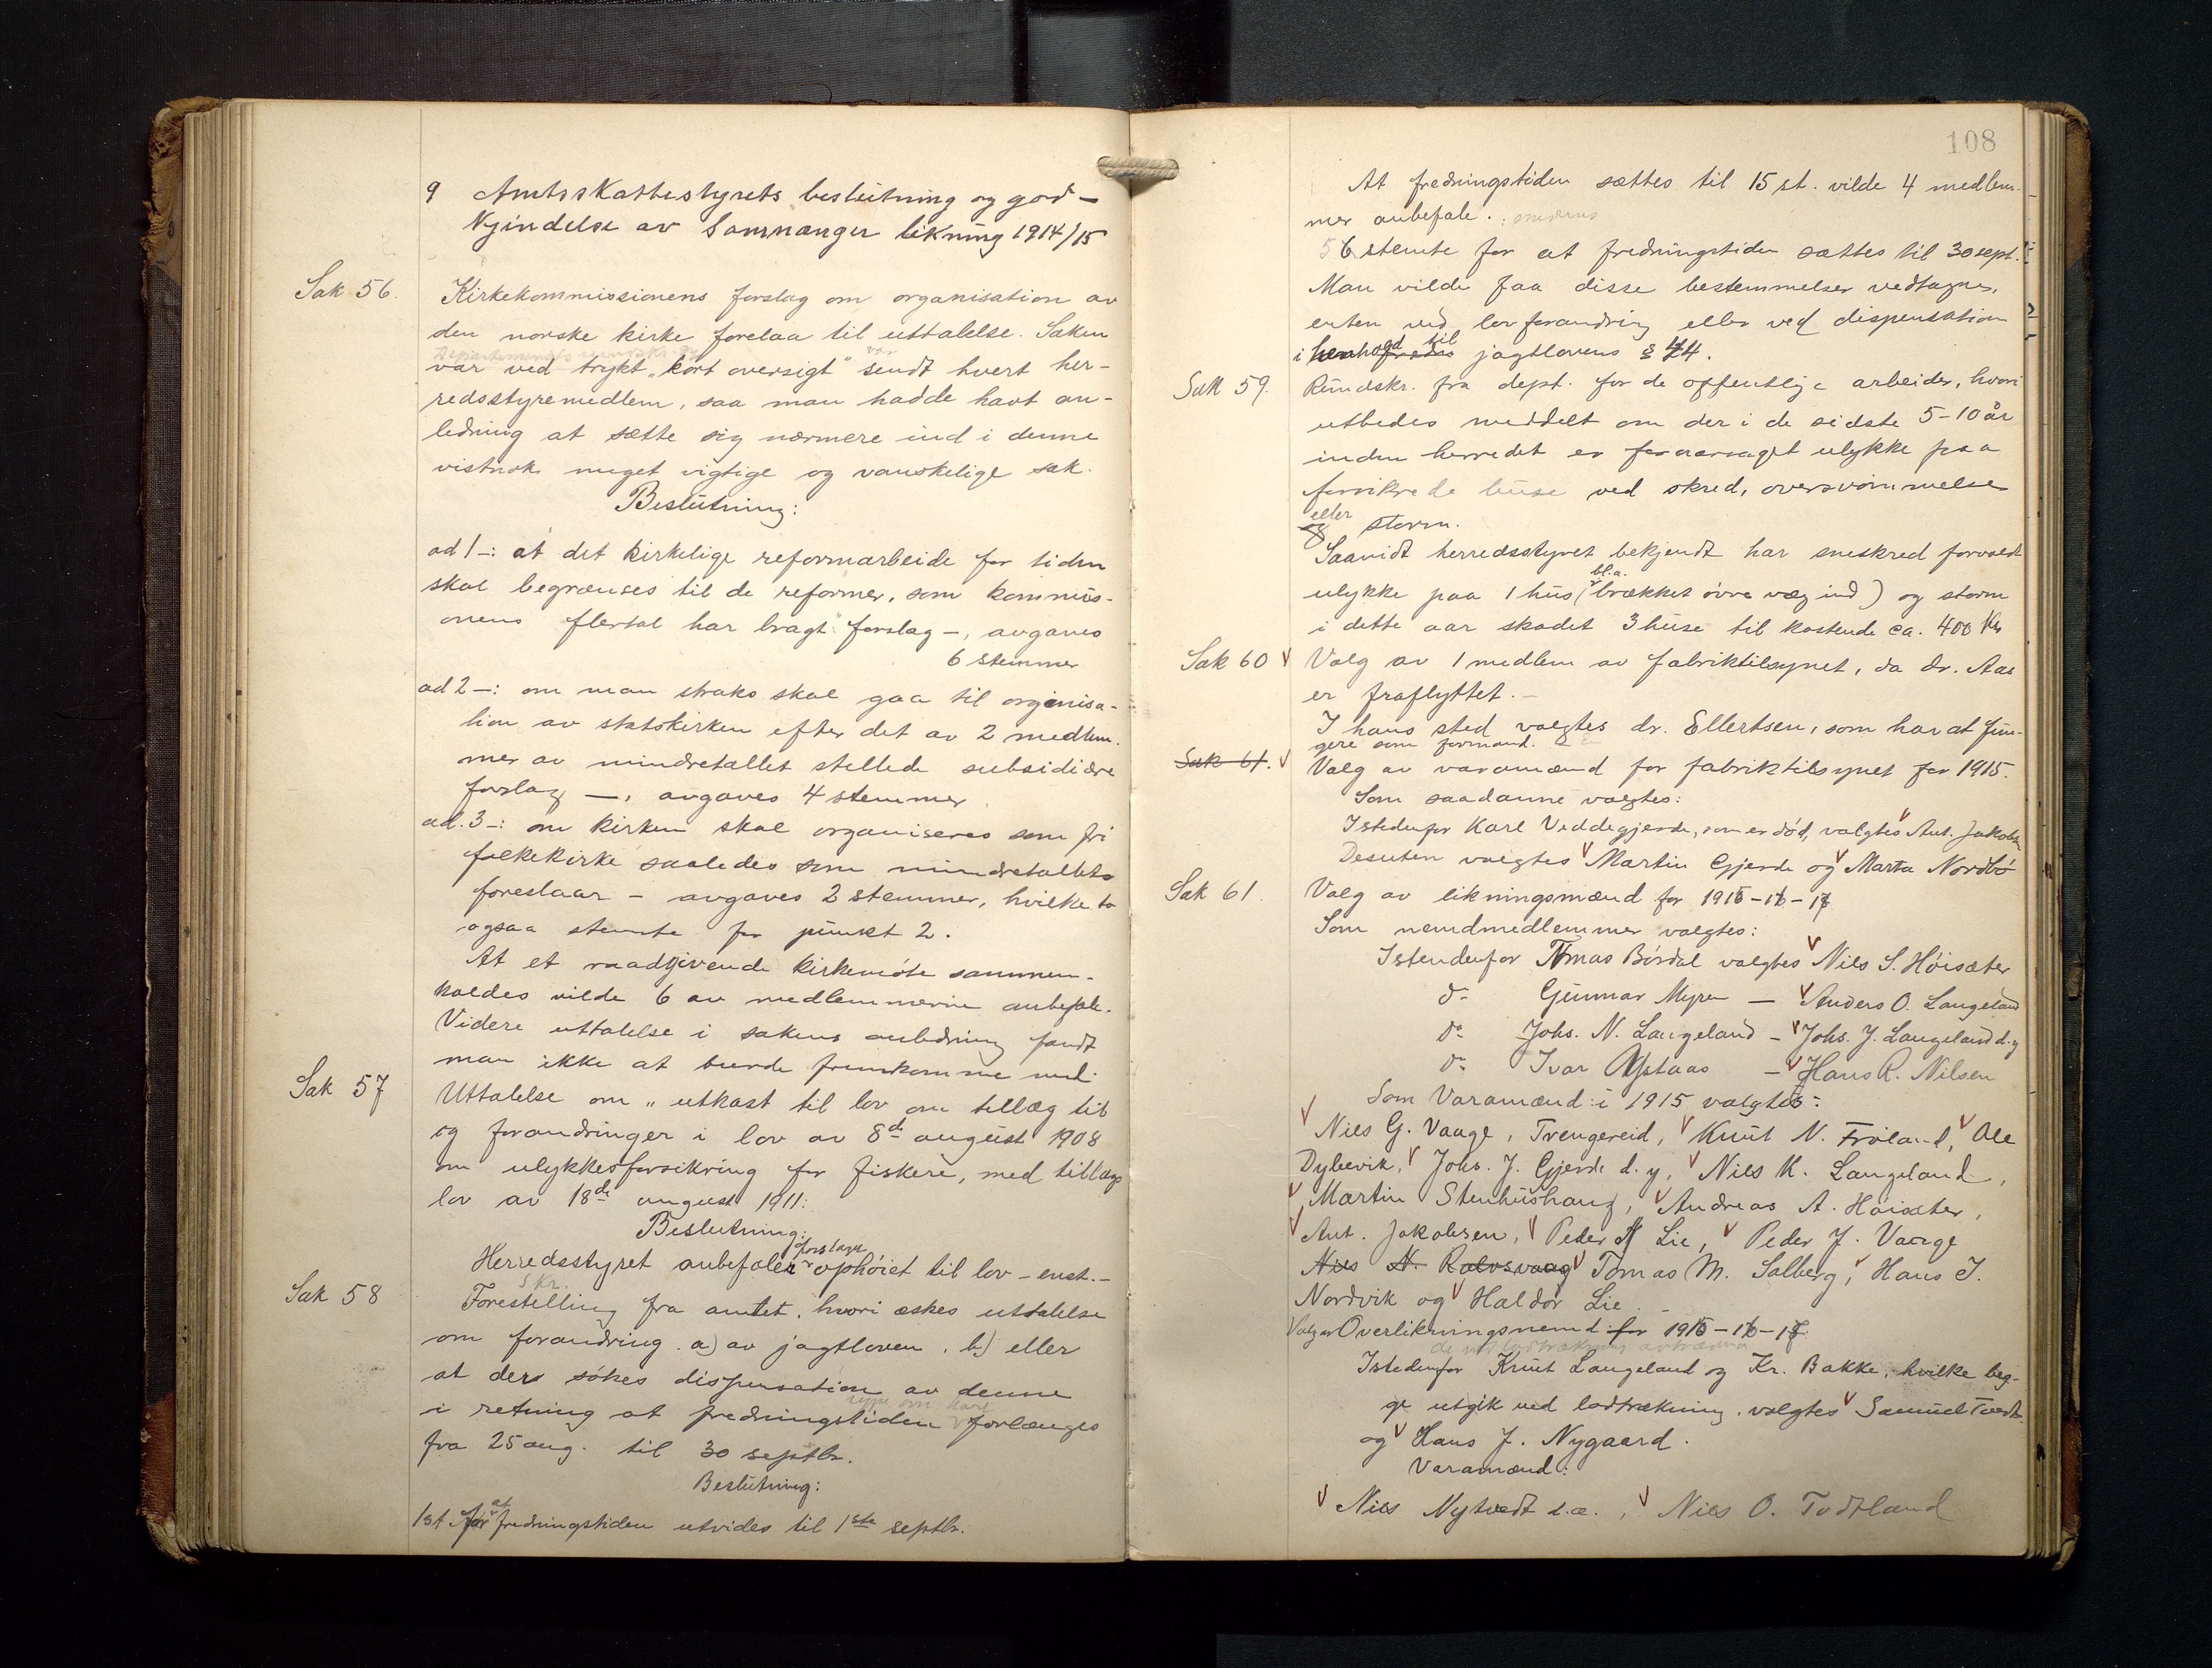 9 Amtsskattestyrets beslutning og god-
kjendelse av Samnanger likning 1914/15
Sak 56.
Kirkekommissionens forslag om organisation av
den norske kirke forelaa til uttalelse. Saken
Departementets
var ved trykt „kort oversigt" var sendt hvert her-
redsstyremedlem, saa man hadde havt an-
ledning at sætte sig nærmere ind i denne
vistnok meget vigtige og vanskelige sak.
Beslutning:
ad 1-: at det kirkelige reformarbeide for tiden
skal begrænses til de reformer, som kommis-
onens flertal har bragt forslag -, avgaves
6 stemmer
ad 2-: om man straks skal gaa til orginisa-
tion av statskirken efter det av 2 medlem-
mer av mindretallet stellede subsidiære
forslag -, avgaves 4 stemmer
ad. 3-: om kirken skal organiseres som fri
folkekirke saaledes som mindretallets
foreslaar - avgaves 2 stemmer, hvilke to
ogsaa stemte for punkt 2.
At et raadgivende kirkemöte sammen-
kaldes vilde 6 av medlemmerne anbefale.
Videre uttalelse i sakens anledning fandt
man ikke at burde fremkomme med.
Sak 57
Uttalelse om „utkast til lov om tillæg til
og forandringer i lov av 8de august 1908
om ulykkesforsikring for fiskere, med tillægs
lov av 18de august 1911:
Beslutning:
Herredsstyret anbefaler forslaget ophöiet til lov - enst.-
Sak 58
Skr.
Forestelling fra amtet, hvori æskes uttalelse
om forandring a) av jagtloven, b) eller
at der søkes dispensation av denne
i retning at fredningstiden rype og hare forlænges
fra 25 aug. til 30 septbr.
Beslutning:
1 st. for at fredningstiden utvides til 1ste septbr.
108
At fredningstiden sættes til 15 st. vilde 4 medlem-
mer anbefale. medens
5 6 stemte for at fredningstiden sættes til 30 sept.
Man vilde faa disse bestemmelser vedtagne,
enten ved lovforandring eller ved dispensation
i henhold til jagtlovens § 44.
Sak 59.
Rundskr. fra dept. for de offentlige arbeider, hvori
utbedes meddelt om der i de sidste 5-10 år
inden herredet er foraarsaget ulykke paa
forsikrede huse ved skred, oversvömmelse
eller
og storm.
Saavidt herredsstyret bekjendt har sneskred forvoldt
ulykke paa 1 hus (bl.a. brækket övre væg ind) og storm
i dette aar skadet 3 huse til kostende ca. 400 Kr
Sak 60
Valg av 1 medlem av fabriktilsynet, da dr. Aas
er fraflyttet.-
I hans sted valgtes dr. Ellertsen, som har at fun-
gere som formand.
Sak 61.
Valg av varamænd for fabriktilsynet for 1915.
Som saadanne valgtes:
Istedenfor Karl Veddegjerde, som er död, valgtes Ant. Jakobsen
Desuten valgtes Martin Gjerde og Marta Nordbö
Sak 61.
Valg av likningsmænd for 1915-16-17
Som nemdmedlemmer valgtes:
Istendenfor Tomas Børdal valgtes Nils S. Höisæter
do Gunnar Myren — Anders O. Langeland
do Johs. N. Langeland - Johs. J. Langeland d.y
do Ivar Ystaas - Hans R. Nilsen
Som Varamænd i 1915 valgtes:
Nils G. Vaage, Trengereid, Knut N. Fröland, Ole
Dyhevik, Johs. J. Gjerde d. y, Nils K. Langeland,
Martin Stenhushaug, Andreas A. Höisæter,
Ant. Jakobsen, Peder A Lie, Peder J. Vaage
Nils N. Rolvsvaag Tomas M. Solberg, Hans J.
Nordvik og Haldor Lie.
Valg av Overlikningsnemd for 1915-16-17
de ved lodtrækning
Istedenfor Knut Langeland og Kr. Bakke, hvilke beg-
ge utgik ved lodtrækning, valgtes Samuel Tvedt
og Hans J. Nygaard.
Varamænd:
Nils Nytvedt d.æ., Nils O. Todtland